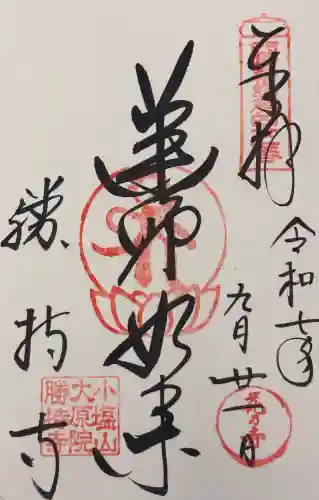 奉拝
令和七年
九月廿一日
薬師如来
勝持寺
小塩山
大原院
勝持寺